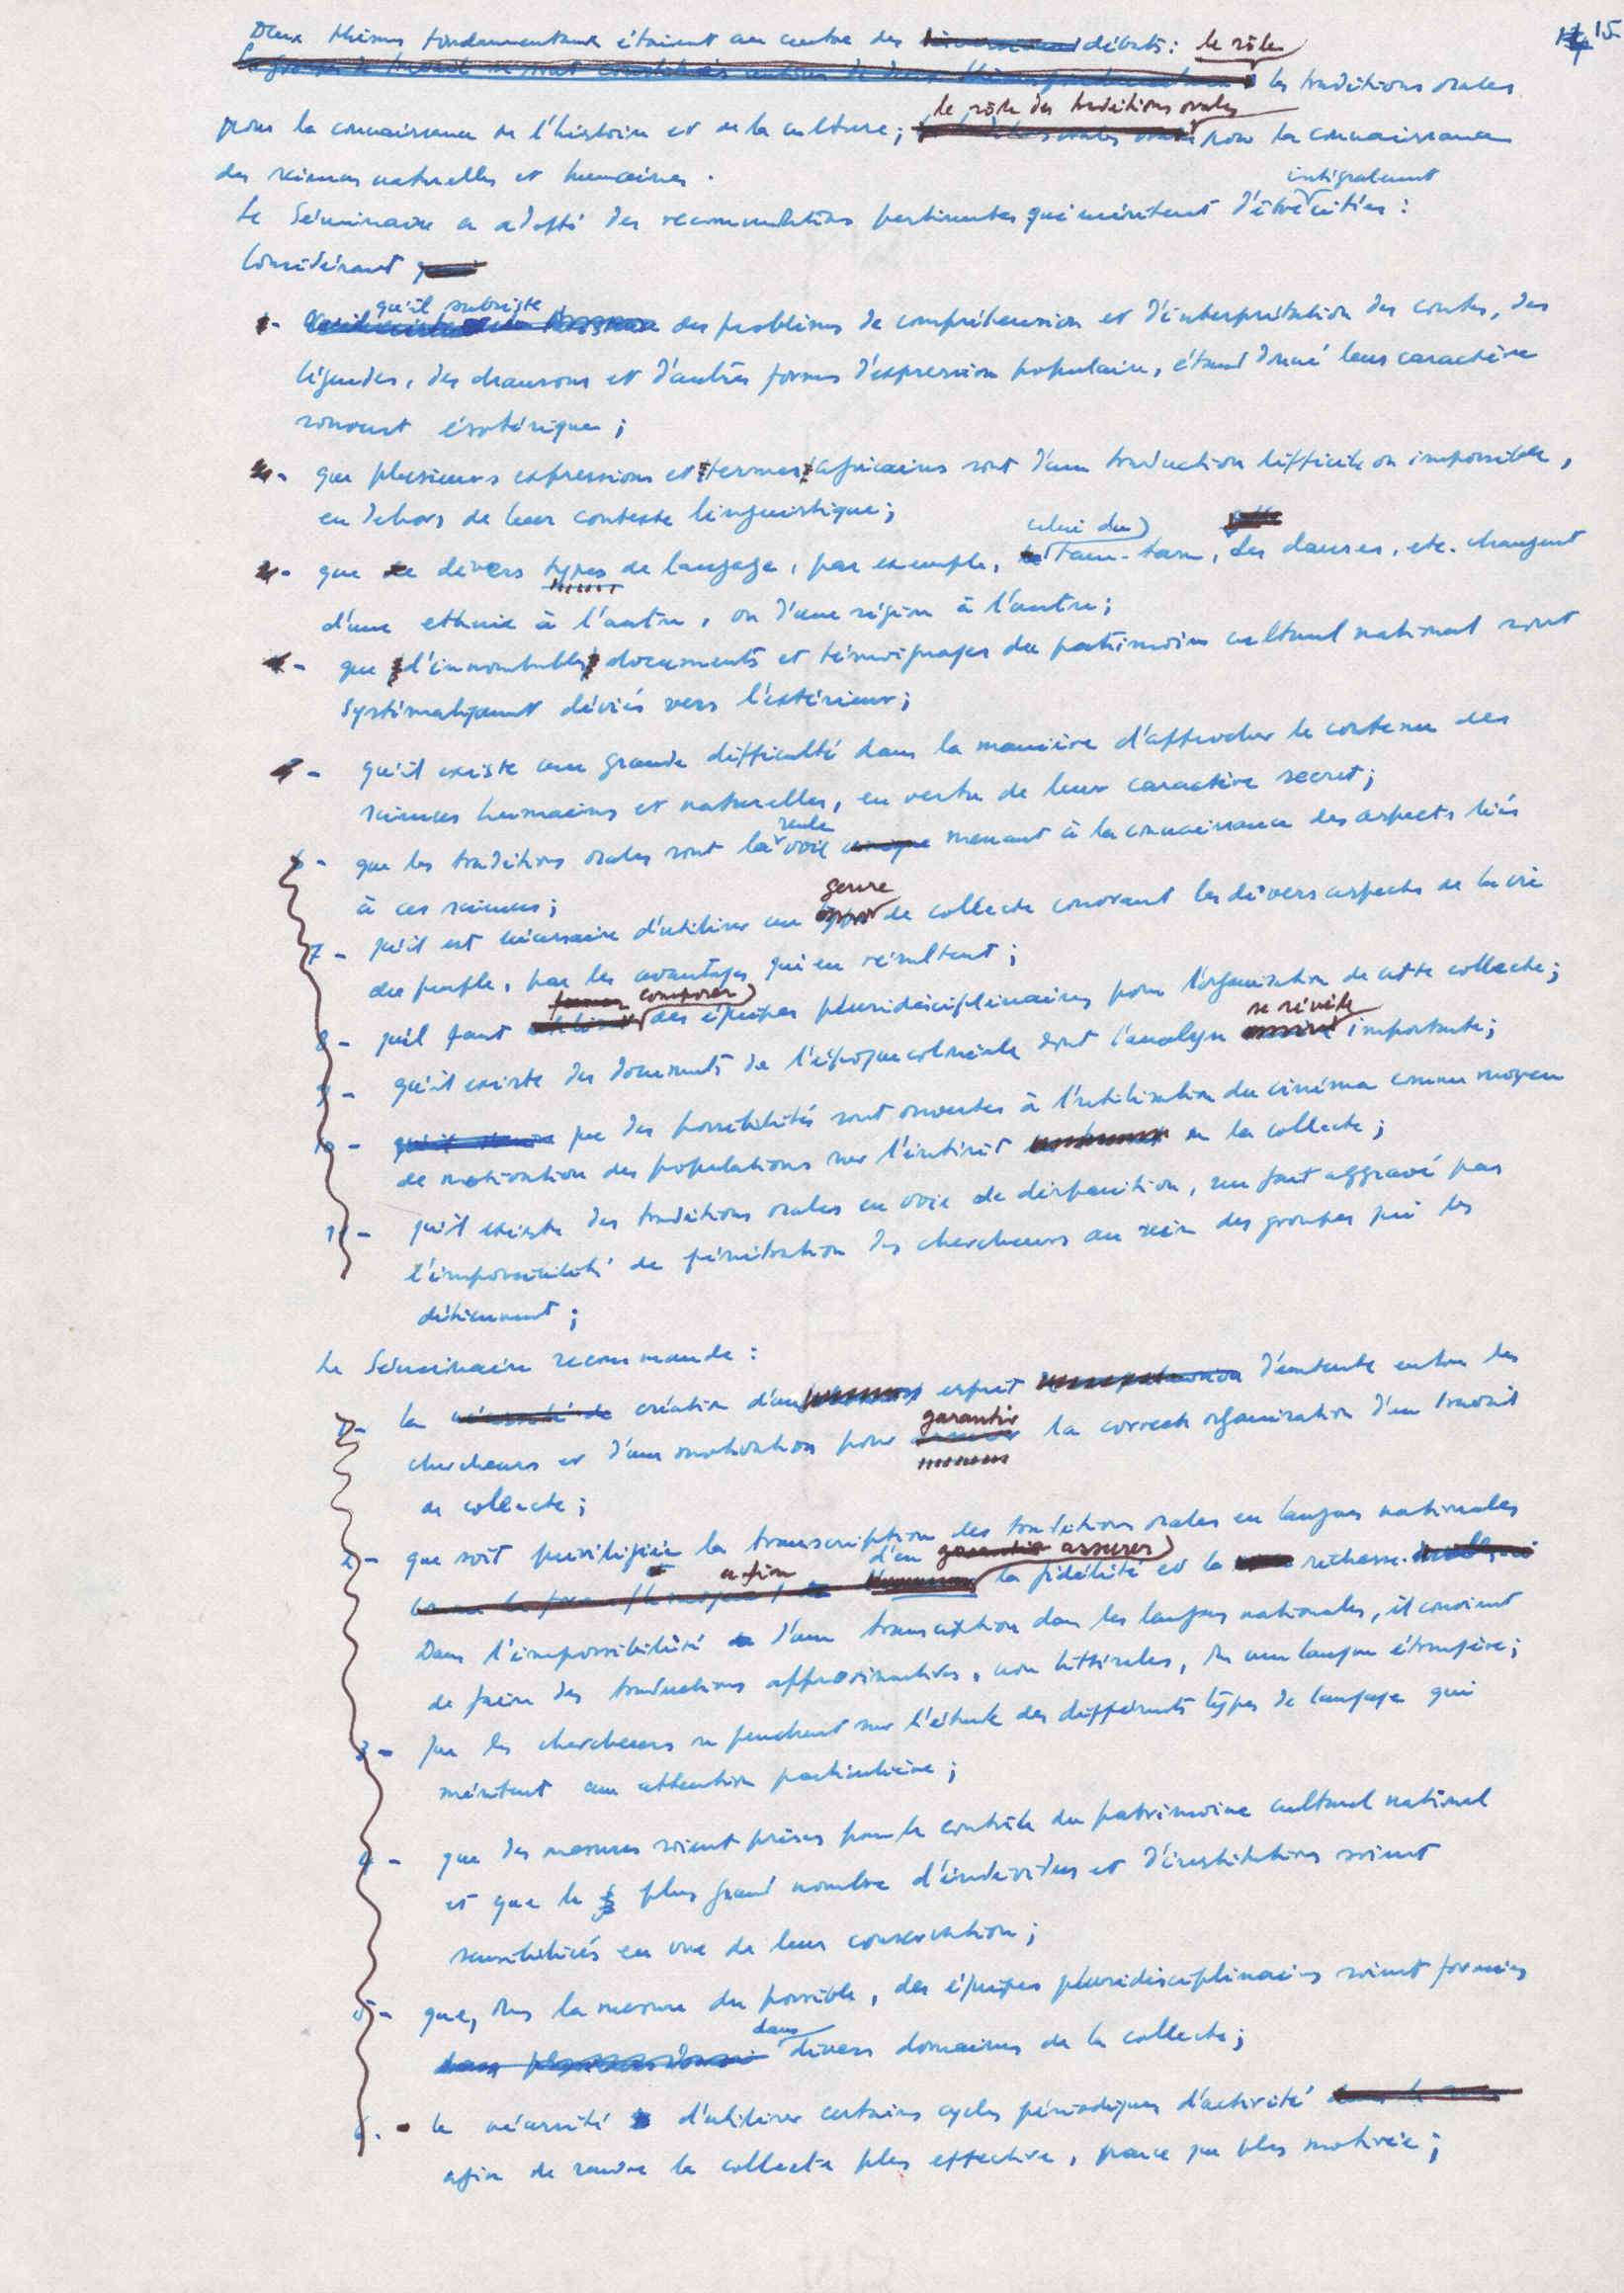 15
Deux thèmes fondamentaux étaient au centre des débats : le rôle
des traditions orales
pour la connaissance de l'histoire et de la culture ; le rôle des traditions orales pour la connaissance
des sciences naturelles et humaines.
Le Séminaire a adopté des recommandations pertinentes qui méritent d'être intégralement citées :
Considérant
1- qu'il subsiste des problèmes de compréhension et d'interprétation des contes, des
légendes, des chansons et d'autres formes d'expression populaire, étant donné leur caractère
souvent ésotérique ;
2- que plusieurs expressions et termes africains sont d'une traduction difficile ou impossible,
en dehors de leur contexte linguistique ;
3- que divers types de langage, par exemple, celui du tam-tam, des danses, etc. changent
d'une ethnie à l'autre, ou d'une région à l'autre ;
4- que d'innombrables documents et témoignages du patrimoine culturel national sont
systématiquement déviés vers l'extérieur ;
5- qu'il existe une grande difficulté dans la manière d'approcher le contenu des
sciences humaines et naturelles, en vertu de leur caractère secret ;
6- que les traditions orales sont la seule voie menant à la connaissance des aspects liés
à ces sciences ;
7- qu'il est nécessaire d'utiliser un genre de collecte couvrant les divers aspects de la vie
du peuple, par les avantages qui en résultent ;
8- qu'il faut composer des équipes pluridisciplinaires pour l'organisation de cette collecte ;
9- qu'il existe des documents de l'époque coloniale dont l'analyse se révèle importante ;
10- que des possibilités sont ouvertes à l'utilisation du cinéma comme moyen
de motivation des populations sur l'intérêt de la collecte ;
11- qu'il existe des traditions orales en voie de disparition, un fait aggravé par
l'impossibilité de pénétration des chercheurs au sein des groupes qui les
détiennent ;
Le Séminaire recommande :
1- la création d'un esprit d'entente entre les
chercheurs et d'une motivation pour garantir la correcte organisation d'un travail
de collecte ;
2- que soit privilégiée la transcription des traditions orales en langues nationales
afin d'en assurer la fidélité et la richesse.
Dans l'impossibilité d'une transcription dans les langues nationales, il convient
de faire des traductions approximatives, non littérales, en une langue étrangère ;
3- que les chercheurs se penchent sur l'étude des différents types de langage qui
méritent une attention particulière ;
4- que des mesures soient prises pour le contrôle du patrimoine culturel national
et que le plus grand nombre d'individus et d'institutions soient
sensibilisés en vue de leur conservation ;
5- que, dans la mesure du possible, des équipes pluridisciplinaires soient formées
dans divers domaines de la collecte ;
6. - la nécessité d'utiliser certains cycles périodiques d'activité
afin de rendre la collecte plus effective, parce que plus motivée ;